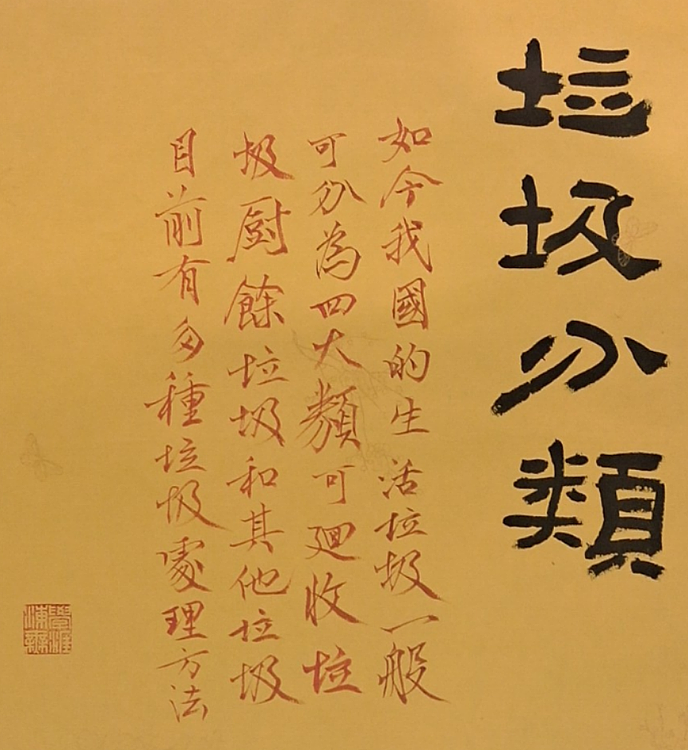 垃圾分類
如今我國的生活垃圾一般
可分為四大類可廻收垃
圾厨餘垃圾和其他垃圾
目前有多種垃圾處理方法